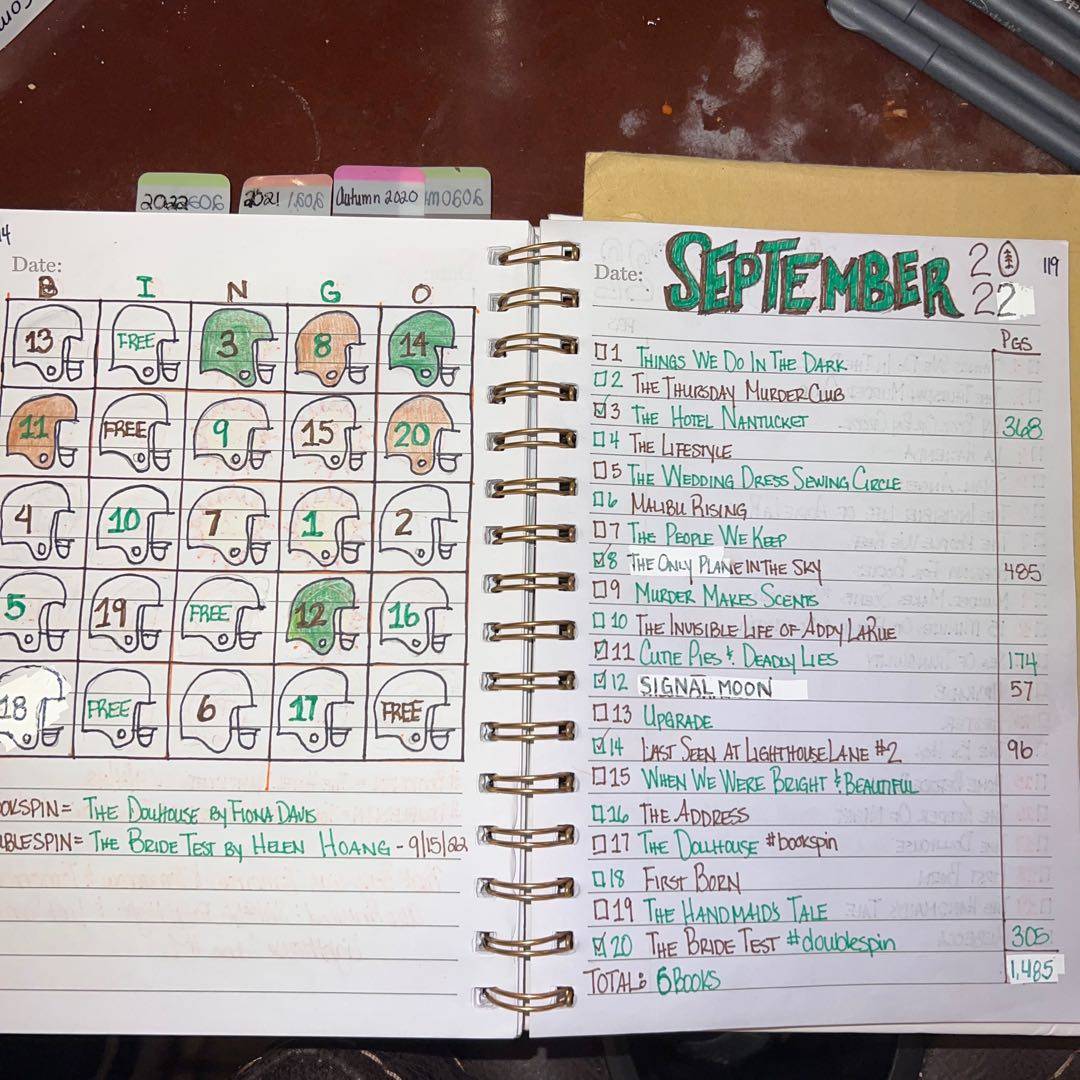 2022
2021
Autumn 2020
Date:
B I N G O
13 FREE 3 8 14
11 FREE 9 15 20
4 10 7 1 2
5 19 FREE 12 16
18 FREE 6 17 FREE
OKSPIN = THE DOLLHOUSE BY FIONA DAVIS
UBLESPIN = THE BRIDE TEST BY HELEN HOANG - 9/15/22
Date: SEPTEMBER 20 119
22
PGS
1 THINGS WE DO IN THE DARK
2 THE THURSDAY MURDER CLUB
3 THE HOTEL NANTUCKET 368
4 THE LIFESTYLE
5 THE WEDDING DRESS SEWING CIRCLE
6 MALIBU RISING
7 THE PEOPLE WE KEEP
8 THE ONLY PLANE IN THE SKY 485
9 MURDER MAKES SCENTS
10 THE INVISIBLE LIFE OF ADDY LARUE
11 CUTIE PIES & DEADLY LIES 174
12 SIGNAL MOON 57
13 UPGRADE
14 LAST SEEN AT LIGHTHOUSE LANE #2 96
15 WHEN WE WERE BRIGHT & BEAUTIFUL
16 THE ADDRESS
17 THE DOLLHOUSE #bookspin
18 FIRST BORN
19 THE HANDMAID'S TALE
20 THE BRIDE TEST #doublespin 305
TOTAL: 6 BOOKS 1,485